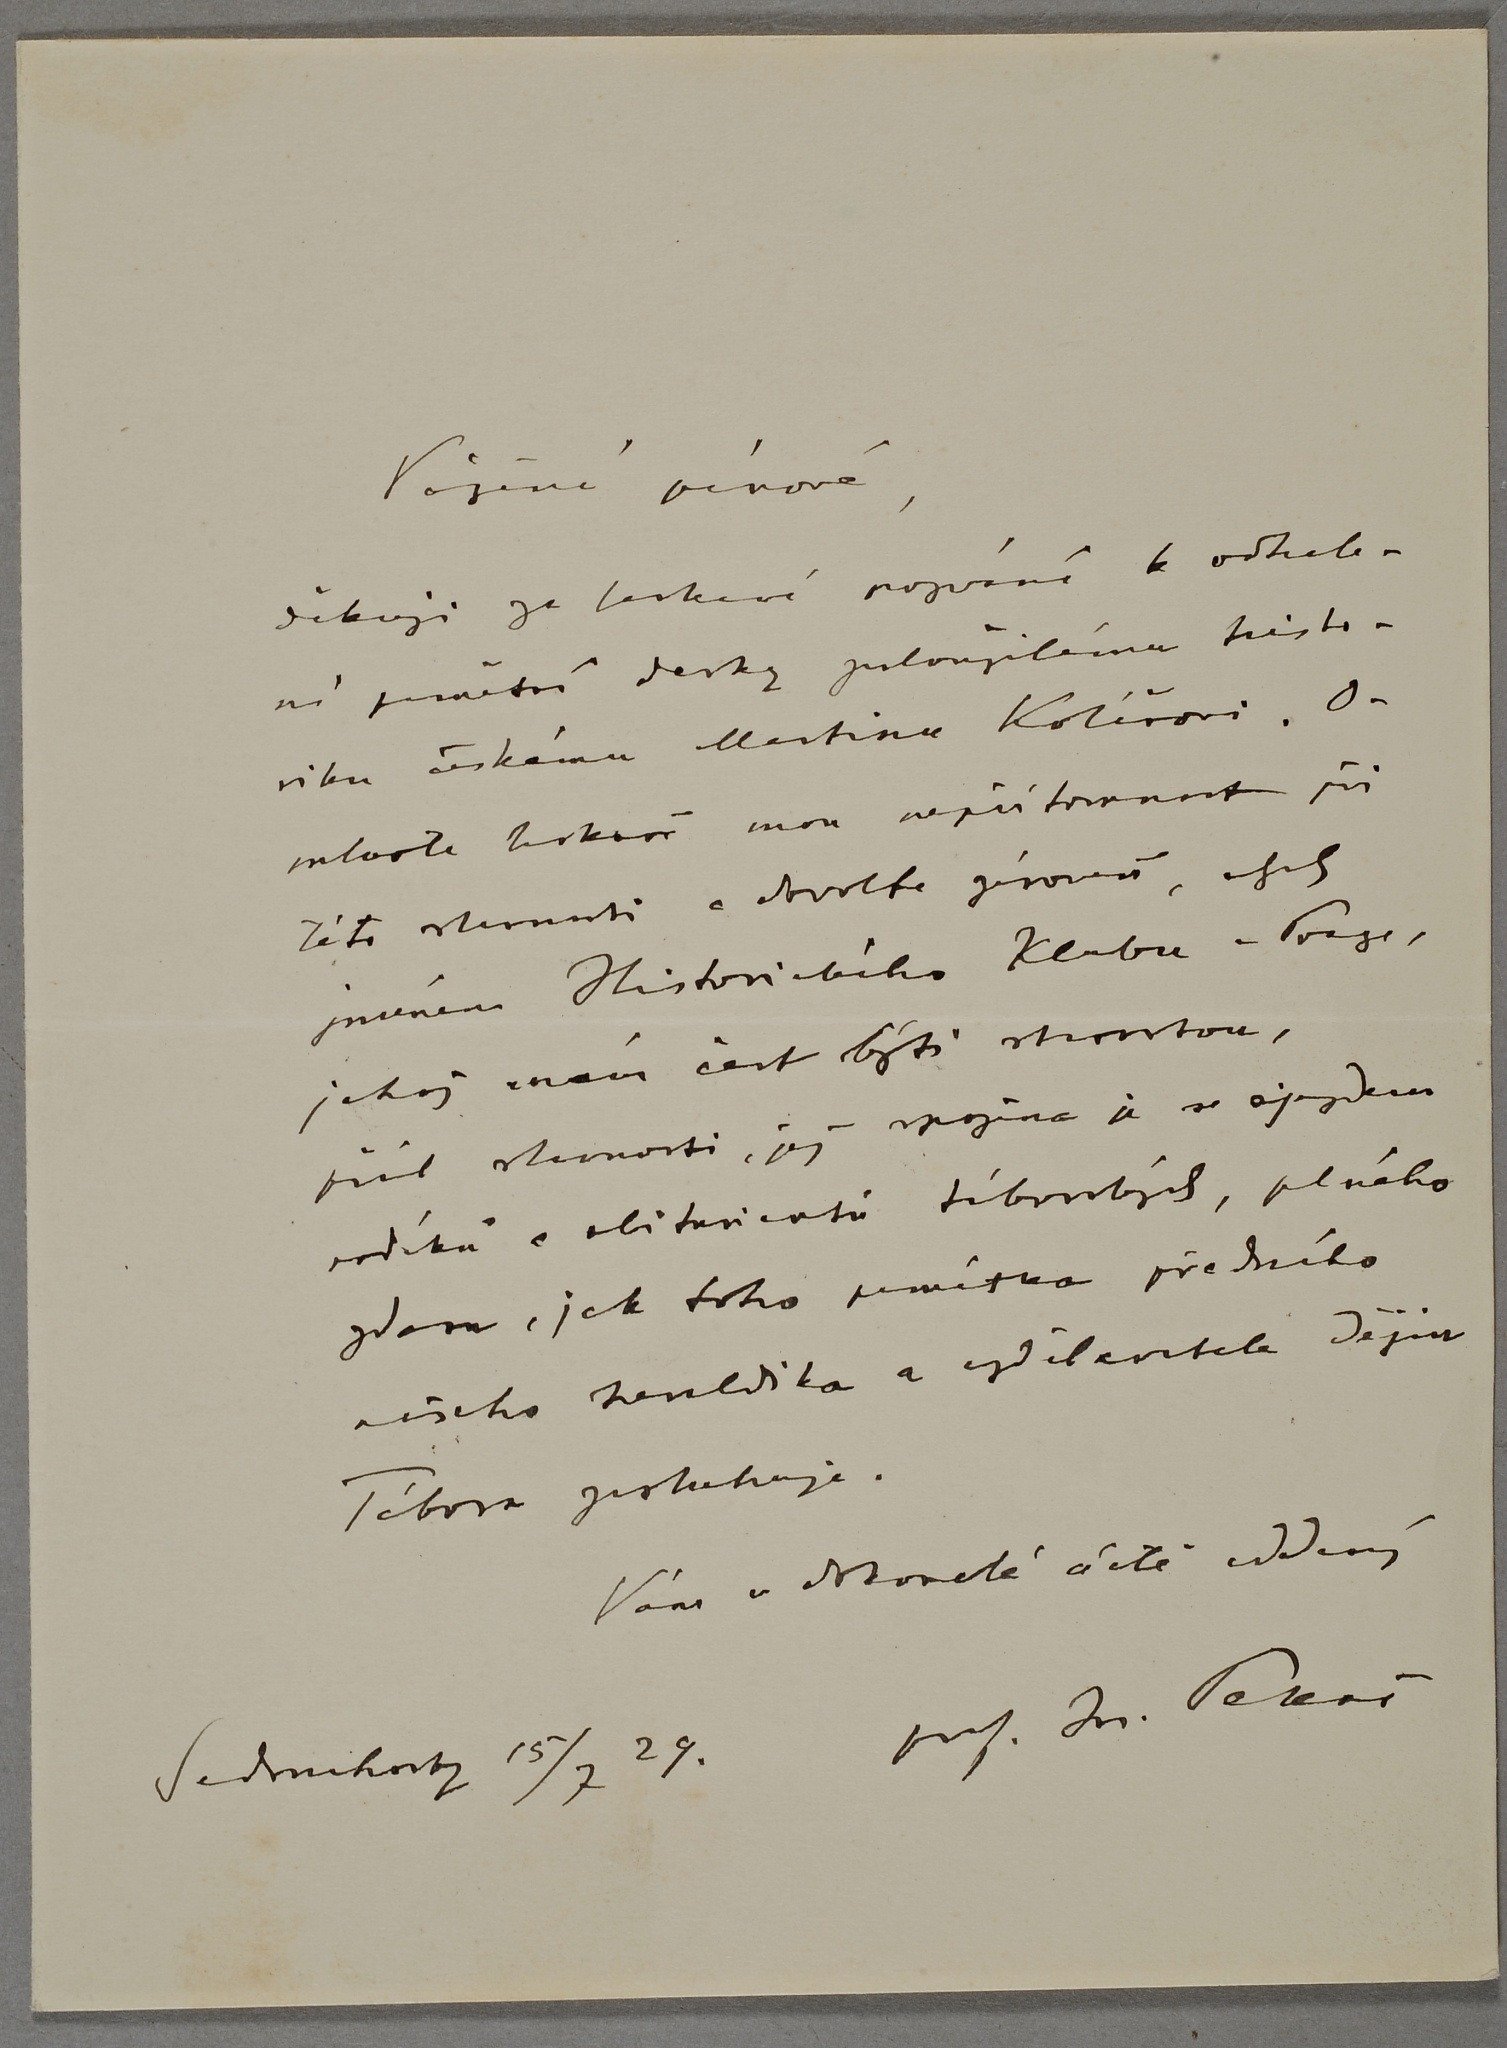 Vážení pánové,
děkuji za laskavé pozvání k odhale-
ní pamětní desky zasloužilému histo-
riku českému Martinu Kolářovi. O-
mluvte laskavě mou nepřítomnost při
této slavnosti a dovolte zároveň, abych
jménem Historického Klubu v Praze,
jehož mám čest býti starostou,
přál slavnosti, jež spojena je se sjezdem
rodáků a abiturientů táborských, plného
zdaru, jak toho památka předního
našeho heraldika a vzdělavatele dějin
Tábora zasluhuje.
Vám v dokonalé úctě oddaný
prof. Jos. Pekař
Sedmihorky 15/7 29.